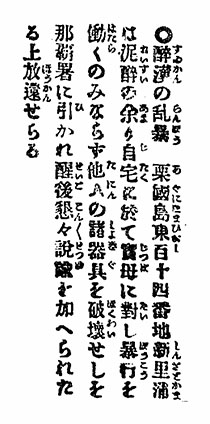 ◎醉漢の乱暴　粟國島東百十四番地新里浦
は泥醉の余り自宅に於て實母に對し暴行を
働くのみならす他人の諸器具を破壊せしを
那覇署に引かれ醒後懇々説諭を加へられた
る上放還せらる